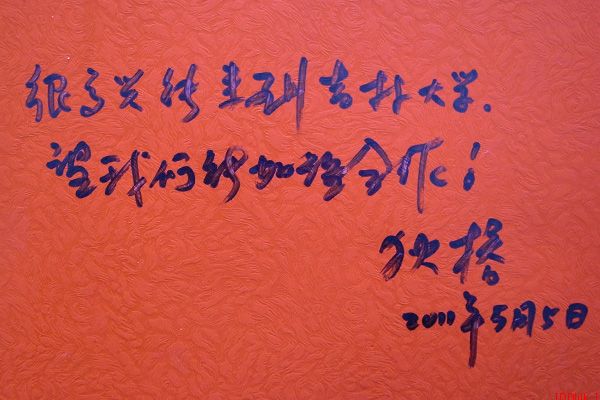 很高兴能来到吉林大学.
望我们能加强合作!
狄格
2011年5月5日